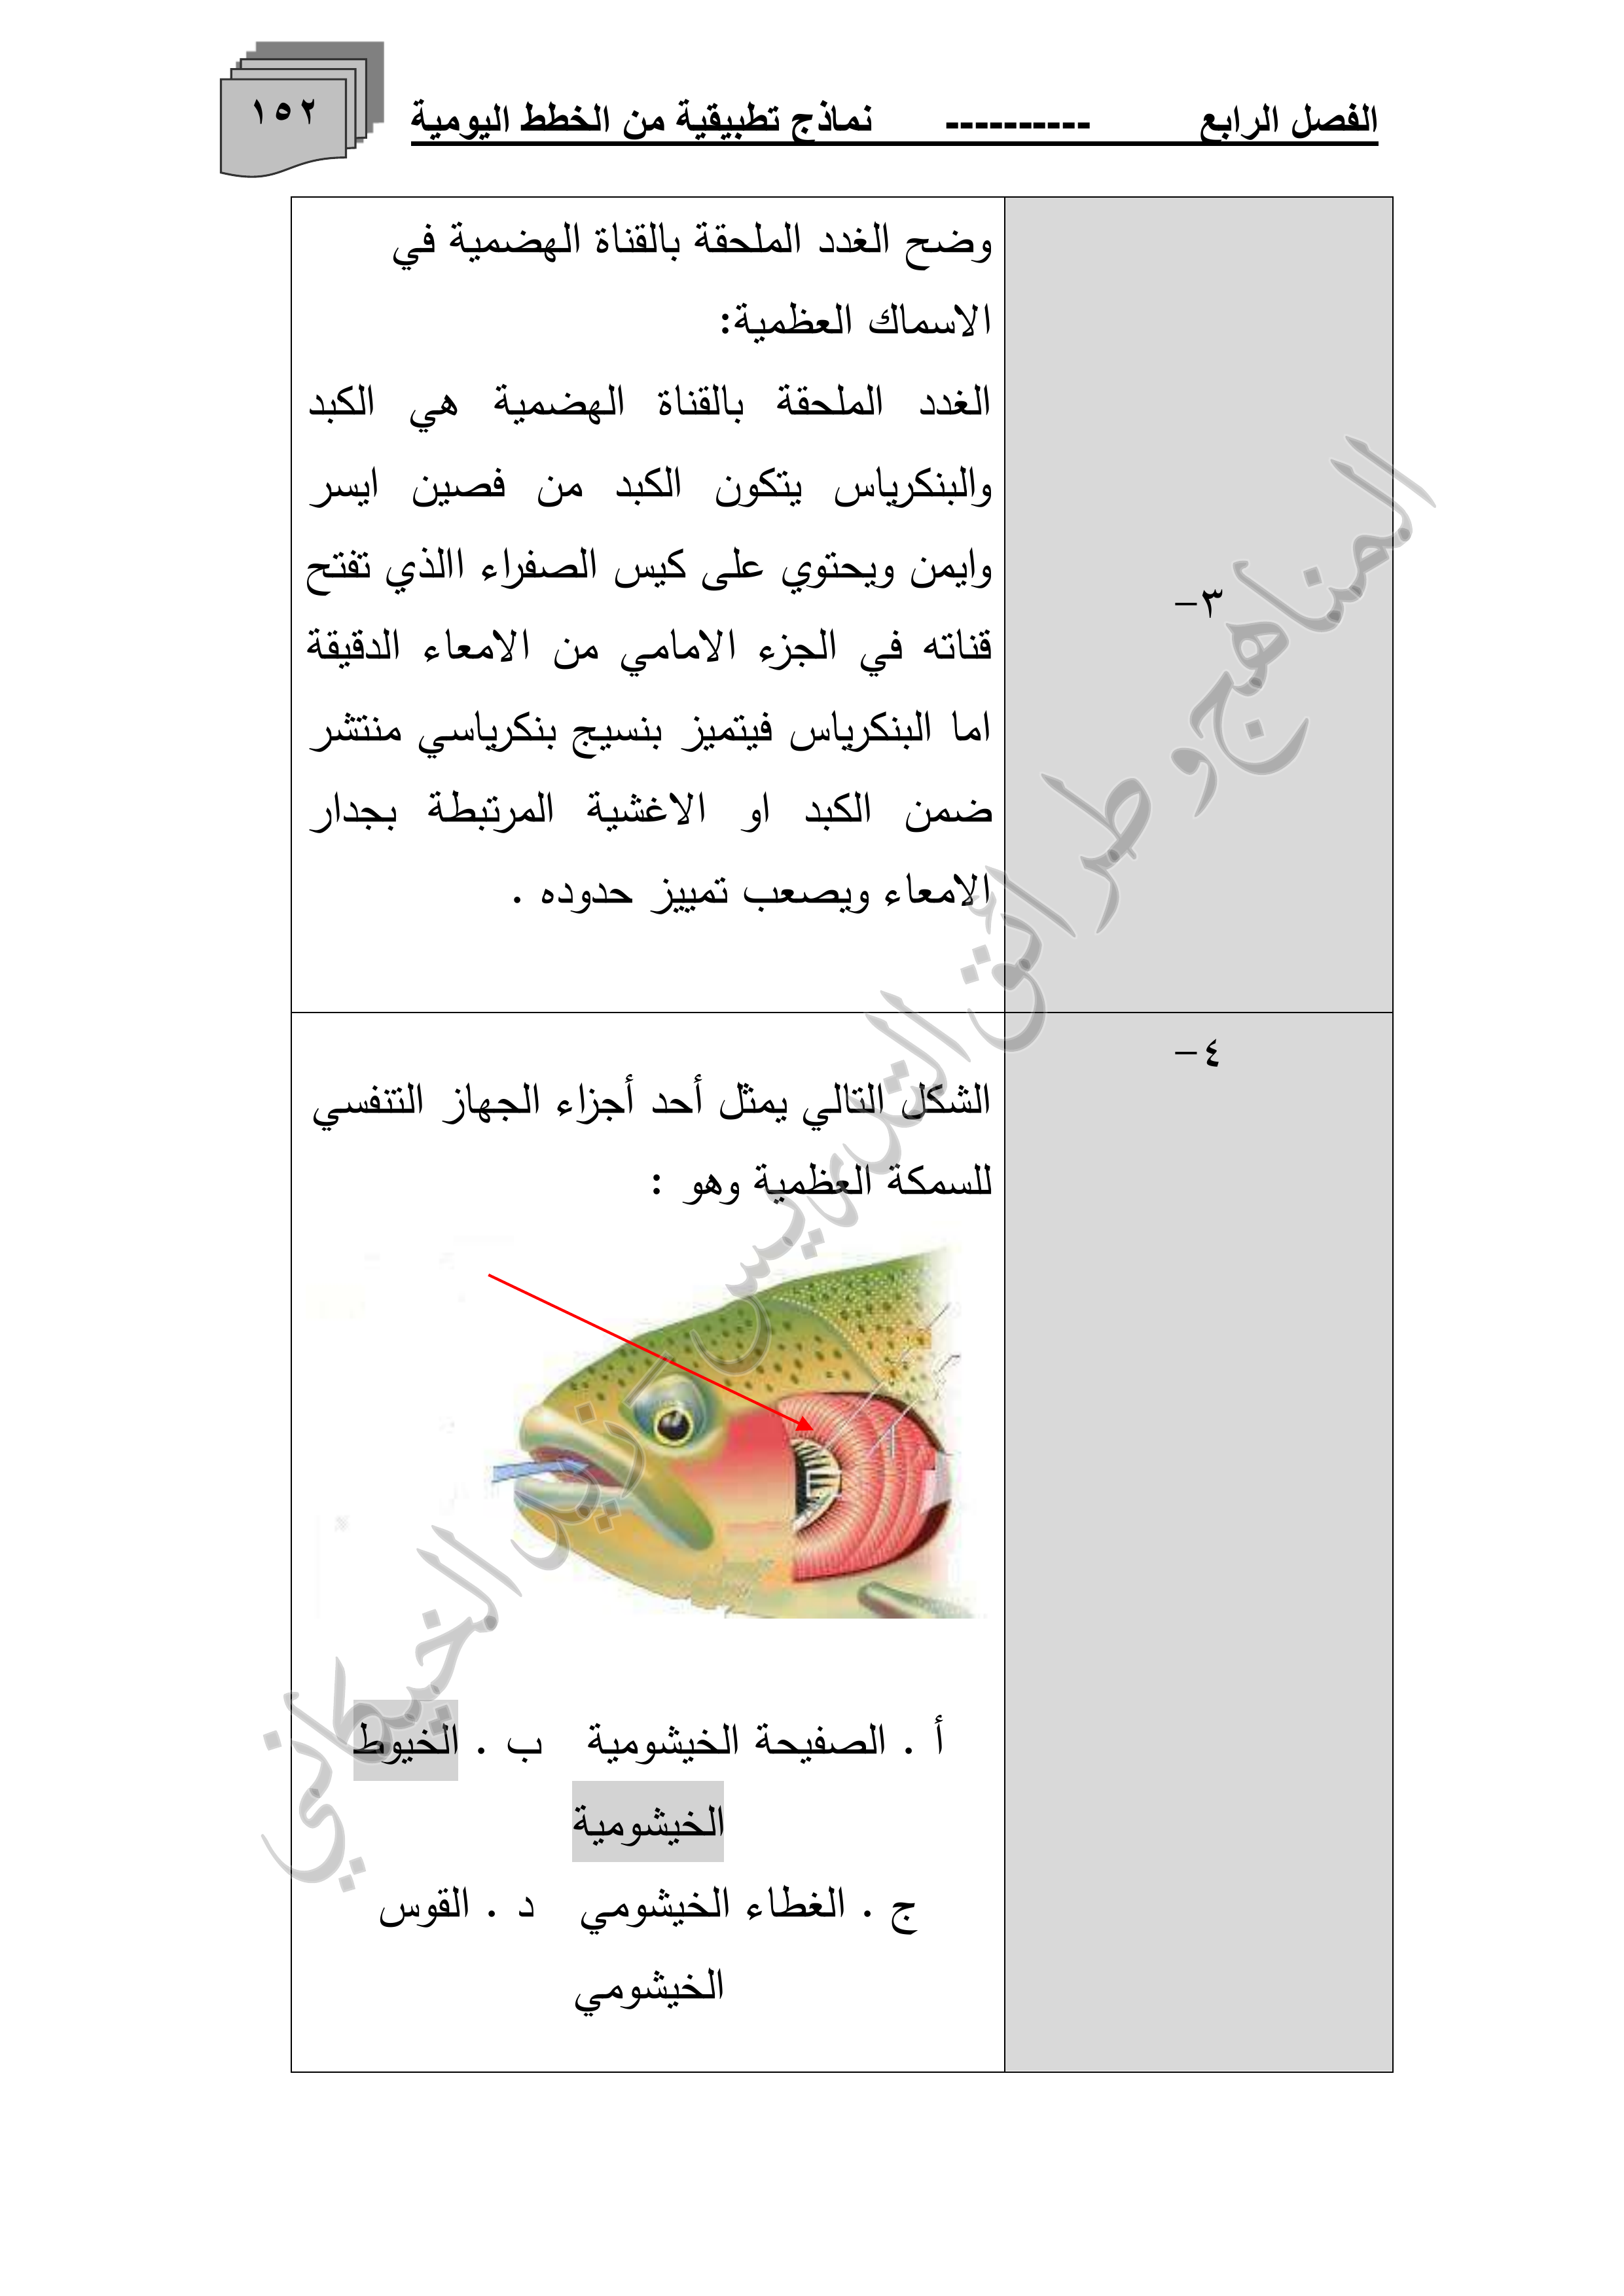 الفصل الرابع ---------- نماذج تطبيقية من الخطط اليومية
١٥٢
٣-
وضح الغدد الملحقة بالقناة الهضمية في
الاسماك العظمية:
الغدد الملحقة بالقناة الهضمية هي الكبد
والبنكرياس يتكون الكبد من فصين ايسر
وايمن ويحتوي على كيس الصفراء االذي تفتح
قناته في الجزء الامامي من الامعاء الدقيقة
اما البنكرياس فيتميز بنسيج بنكرياسي منتشر
ضمن الكبد او الاغشية المرتبطة بجدار
الامعاء ويصعب تمييز حدوده .
٤-
الشكل التالي يمثل أحد أجزاء الجهاز التنفسي
للسمكة العظمية وهو :
أ . الصفيحة الخيشومية ب . الخيوط
الخيشومية
ج . الغطاء الخيشومي د . القوس
الخيشومي